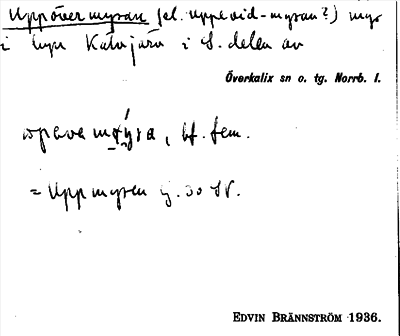 Uppövermyran (el. uppe vid-myran?) myr
i byn Kälvjärv i S. delen av
Överkalix sn o. tg. Norrb. l.
bf. fem.
= Uppmyren
EDVIN BRÄNNSTRÖM 1936.